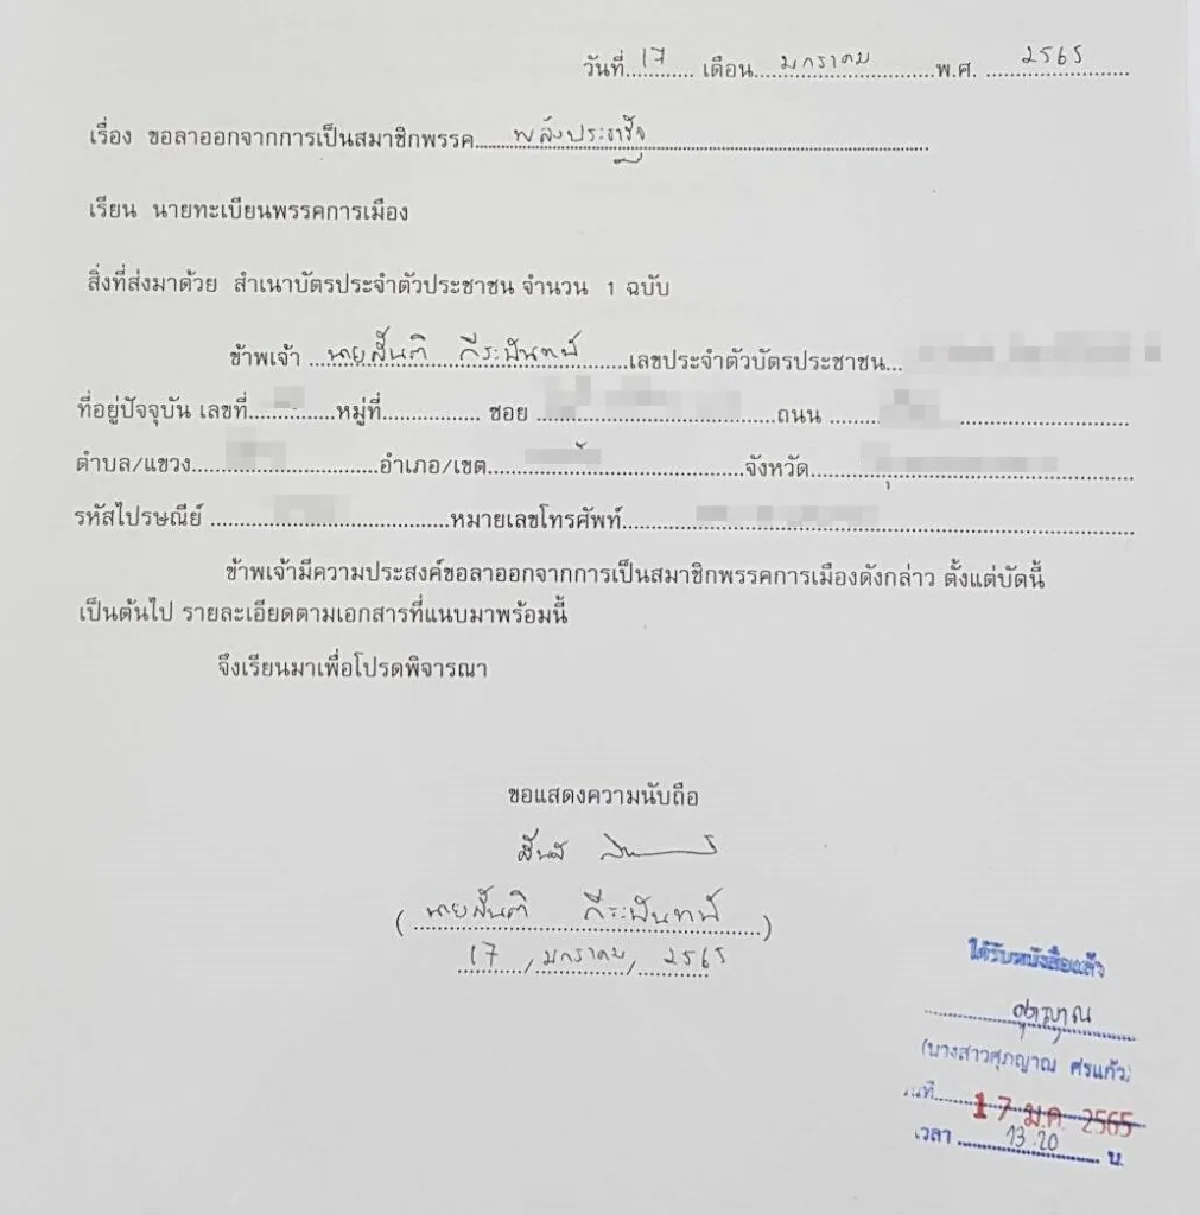 วันที่ 17 เดือน มกราคม พ.ศ. 2565
เรื่อง ขอลาออกจากการเป็นสมาชิกพรรค พลังประชารัฐ
เรียน นายทะเบียนพรรคการเมือง
สิ่งที่ส่งมาด้วย สำเนาบัตรประจำตัวประชาชน จำนวน 1 ฉบับ
ข้าพเจ้า นายสันติ กีระนันทน์ เลขประจำตัวบัตรประชาชน
ที่อยู่ปัจจุบัน เลขที่ หมู่ที่ ซอย ถนน
ตำบล/แขวง อำเภอ/เขต จังหวัด
รหัสไปรษณีย์ หมายเลขโทรศัพท์
ข้าพเจ้ามีความประสงค์ขอลาออกจากการเป็นสมาชิกพรรคการเมืองดังกล่าว ตั้งแต่บัดนี้
เป็นต้นไป รายละเอียดตามเอกสารที่แนบมาพร้อมนี้
จึงเรียนมาเพื่อโปรดพิจารณา
ขอแสดงความนับถือ
(นายสันติ กีระนันทน์)
17 / มกราคม / 2565
ได้รับหนังสือแล้ว
ศุภญาณ
(นางสาวศุภญาณ ศรแก้ว)
วันที่ 17 ม.ค. 2565
เวลา 13.20 น.